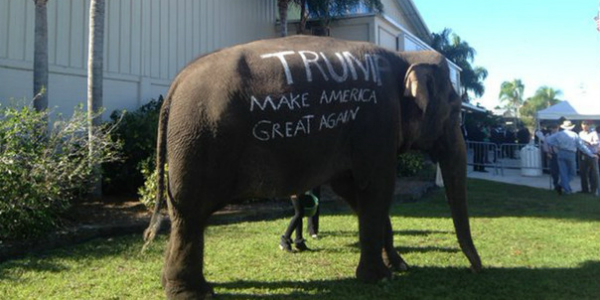 TRUMP
MAKE AMERICA
GREAT AGAIN